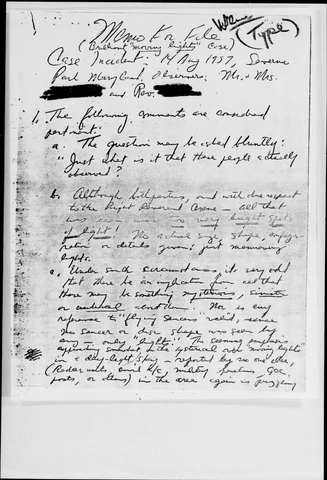 Memo For File
(Type)
(Brilliant "moving lights" Case)
Case Incident: 14 Aug 1957, Severna
Park Maryland, Observer; Mr. & Mrs.
and Rev.
1. The following comments are considered
pertinent:
a. The question may be asked bluntly:
"Just what is it that these people actually
observed?
b. Although both parties, and with due respect
to the Right Reverend Owens - all that
very bright spots
of light! No actual size, shape, configu-
ration or details given; just moving
lights.
c. Under such circumstances, it's very odd
that there be an implication from all that
there may be something mysterious, sinister
or unusual Nor is any
reference to "flying saucers" valid, since
no saucer or disc shape was seen by
any - only "lights". The seeming emphasis
appearing somewhat on the hysterical over "moving lights"
in a day-light sky - reported by no one else,
(Radar units, civil A/C, military facilities, GOC
posts, or others) in the area again is puzzling